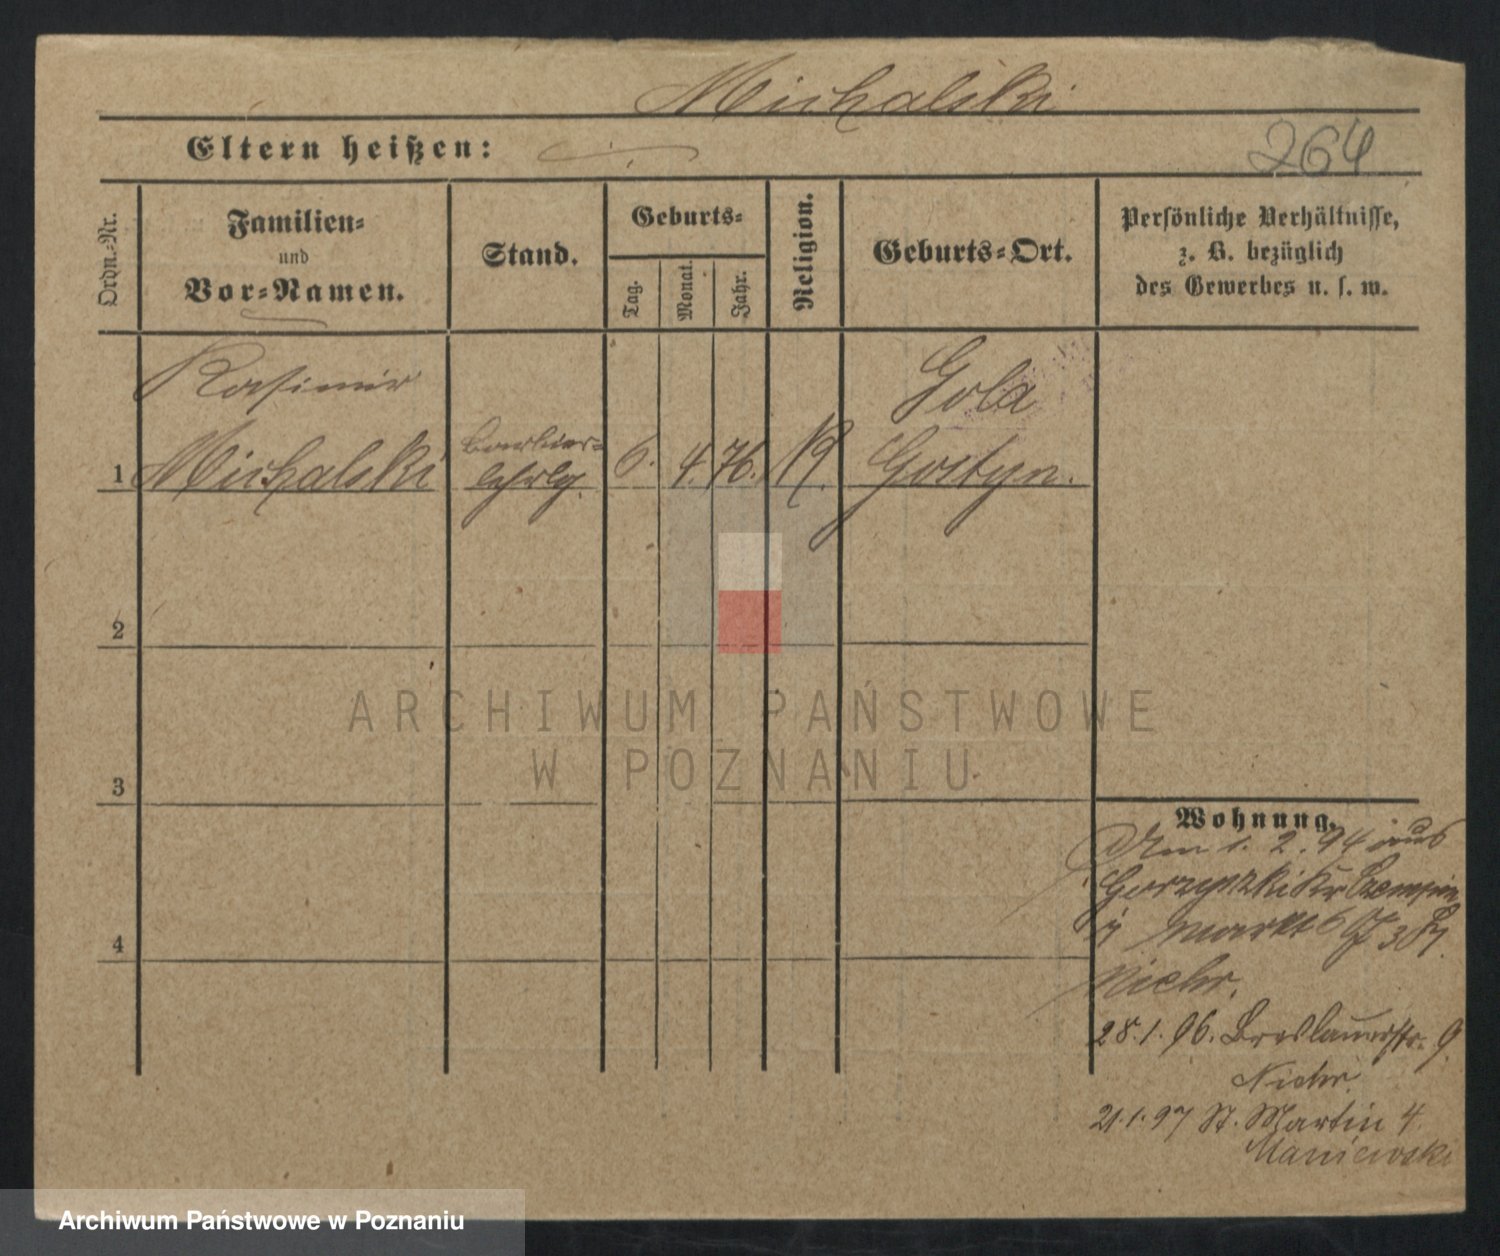 Michalski
264
Eltern heißen:
Ordn.-Nr.
Familien-
und
Vor-Namen.
Stand.
Geburts-
Tag.
Monat.
Jahr.
Religion.
Geburts-Ort.
Persönliche Verhältnisse,
z. B. bezüglich
des Gewerbes u. s. w.
Kasimir
Gola
1 Michalski Barbier-
lehrlg. 6. 4. 76. Gostyn.
2
3
4
Wohnung.
Am 1. 2. 94 aus
Kr
Markt 6
Niehr.
28.1.96. Breslauerstr. 9
Niehr.
21.1.97 St. Martin 4
Maniewski
ARCHIWUM PAŃSTWOWE
W POZNANIU
Archiwum Państwowe w Poznaniu